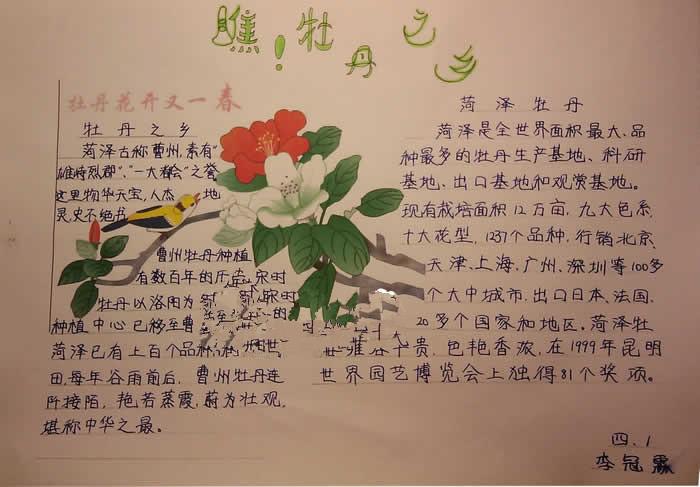 瞧！牡丹之乡
牡丹花开又一春
牡丹之乡
菏泽古称曹州,素有"
雄峙烈郡"、"一大都会"之誉
这里物华天宝,人杰地
灵,史不绝书
曹州牡丹种植
有数百年的历史
牡丹以洛阳为
种植中心已移至曹
菏泽已有上百个品种
田,每年谷雨前后,曹州牡丹连
阡接陌,艳若蒸霞,蔚为壮观,
堪称中华之最。
菏泽牡丹
菏泽是全世界面积最大、品
种最多的牡丹生产基地、科研
基地、出口基地和观赏基地。
现有栽培面积12万亩,九大色系,
十大花型,1237个品种,行销北京、
天津、上海、广州、深圳等100多
个大中城市,出口日本、法国、
20多个国家和地区。菏泽牡
贵,色艳香浓,在1999年昆明
世界园艺博览会上独得81个奖项。
四.1
李冠霖